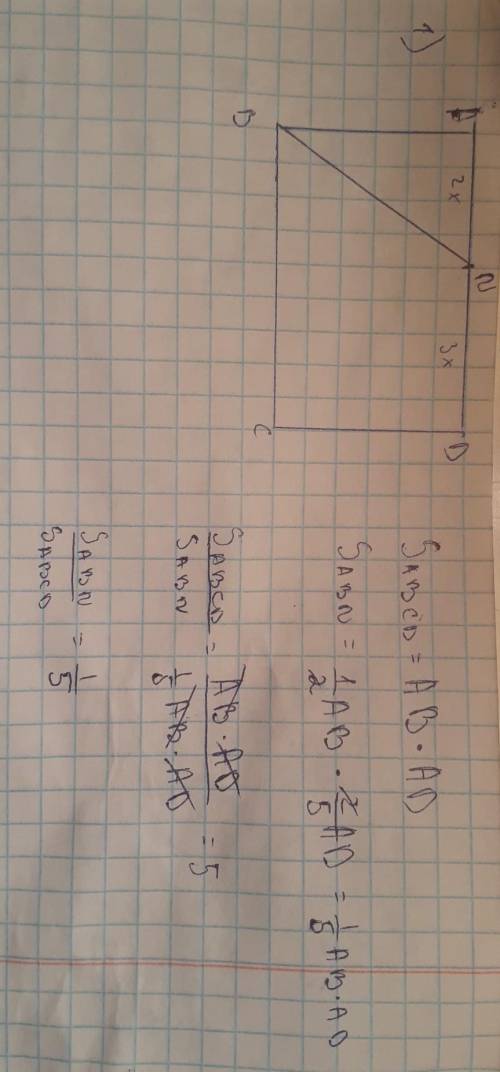 1)
A 2x N 3x D
B C
S_ABCD = AB · AD
S_ABN = 1/2 AB · 2/5 AD = 1/5 AB · AD
S_ABCD / S_ABN = AB · AD / 1/5 AB · AD = 5
S_ABN / S_ABCD = 1/5